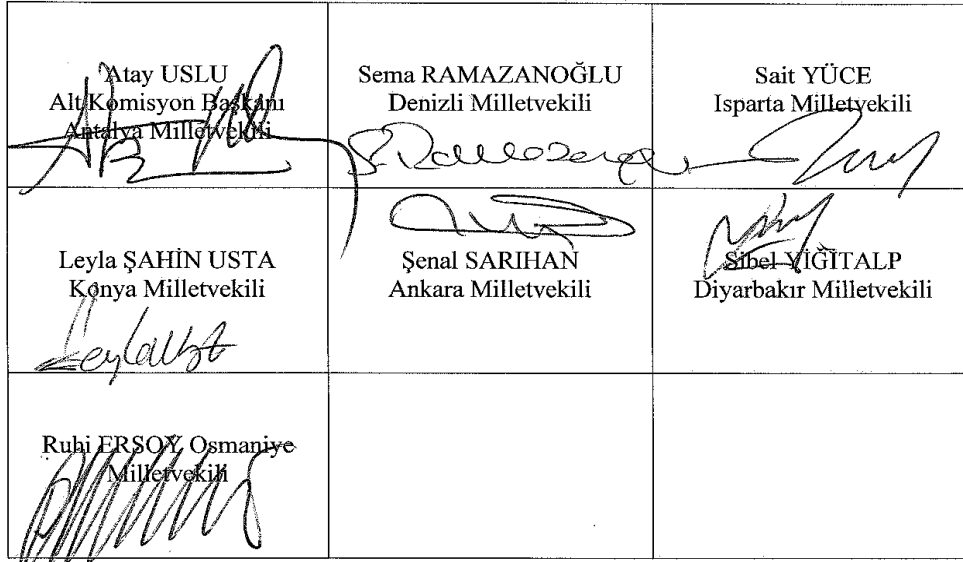 Atay USLU
Alt Komisyon Başkanı
Antalya Milletvekili
Sema RAMAZANOĞLU
Denizli Milletvekili
Sait YÜCE
Isparta Milletvekili
Leyla ŞAHİN USTA
Konya Milletvekili
Şenal SARIHAN
Ankara Milletvekili
Sibel YİĞİTALP
Diyarbakır Milletvekili
Ruhi ERSOY Osmaniye
Milletvekili